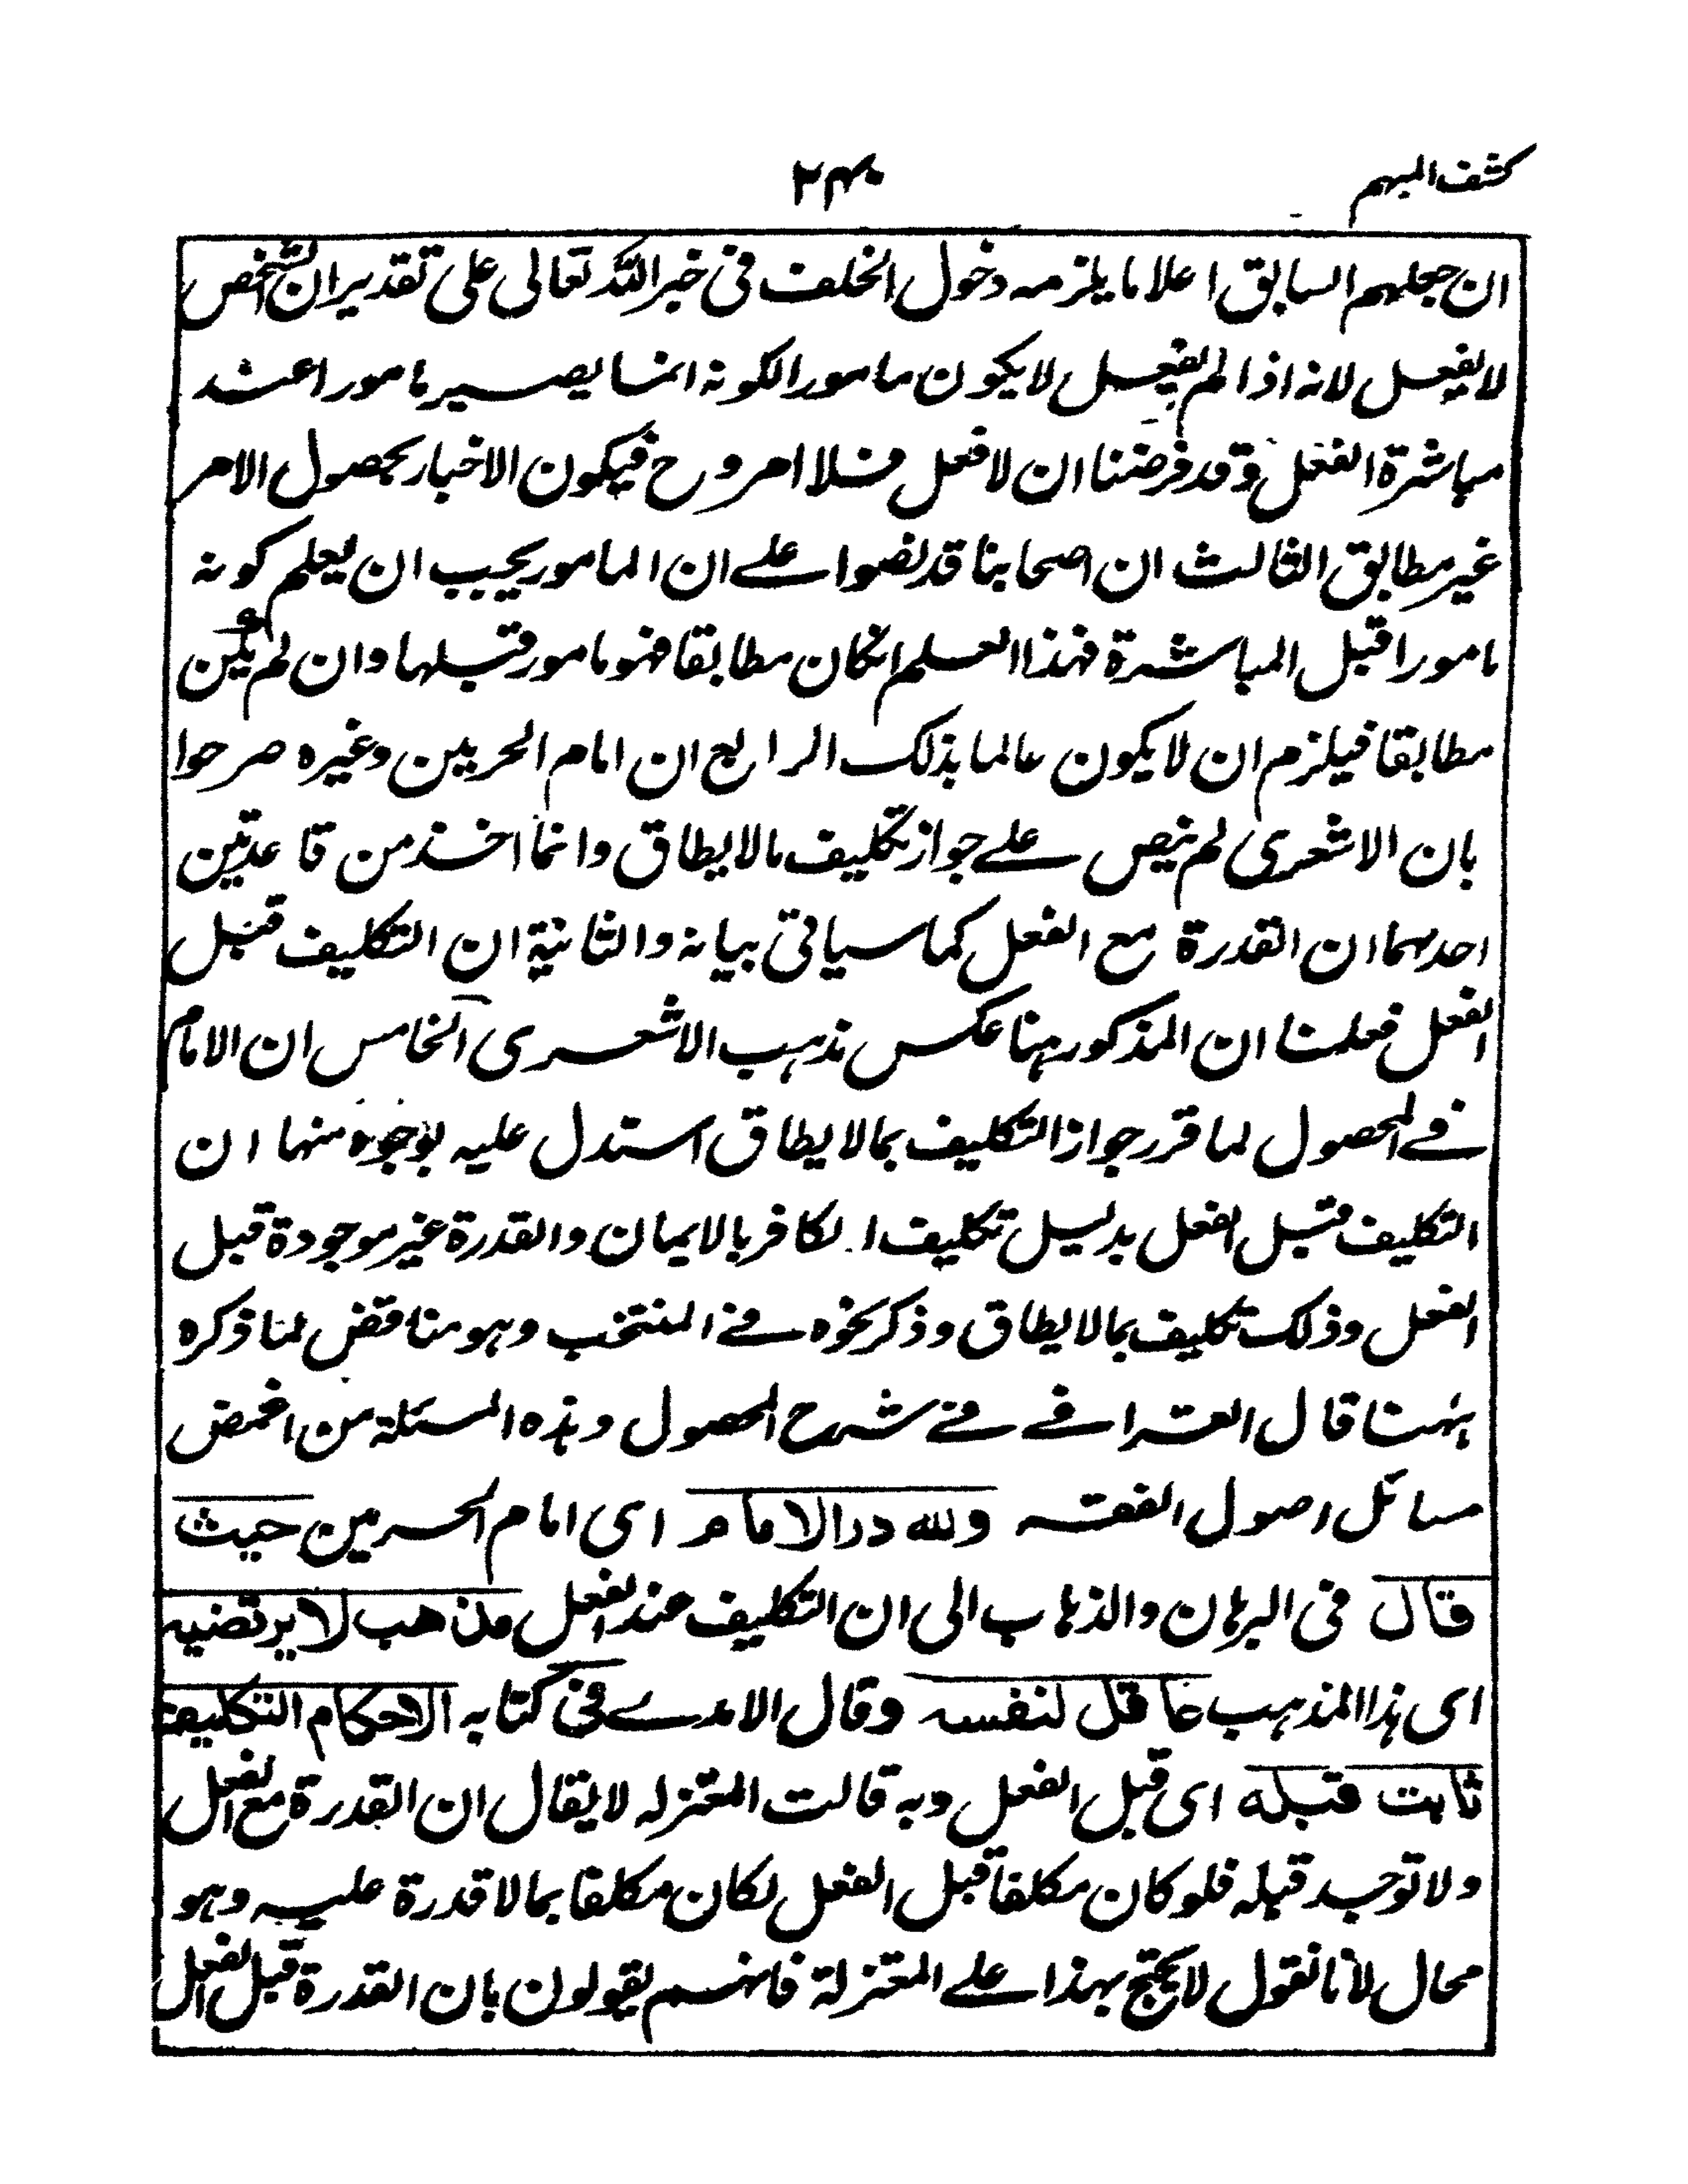 كشف المبهم
ان جعلهم السابق اعلاما يلزمه دخول الخلف فى خبر الله تعالى على تقدير ان الشخص
لا يفعل لانه اذا لم يفعل لا يكون مامورا لكونه انما يصير مامورا عند
مباشرة الفعل وقد فرضنا ان لا فعل فلا امر وح فيكون الاخبار بحصول الامر
غير مطابق الثالث ان اصحابنا قد نصوا على ان المامور يجب ان يعلم كونه
مامورا قبل المباشرة فهذا العلم انكان مطابقا فهو مامور قبلها وان لم يكن
مطابقا فيلزم ان لا يكون عالما بذلك الرابع ان امام الحرمين وغيره صرحوا
بان الاشعرى لم ينص على جواز تكليف مالا يطاق وانما اخذ من قاعدتين
احدهما ان القدرة مع الفعل كما سياتى بيانه والثانية ان التكليف قبل
الفعل فعلمنا ان المذكور هنا عكس مذهب الاشعرى الخامس ان الامام
فى المحصول لما قرر جواز التكليف بمالا يطاق استدل عليه بوجوه منها ان
التكليف قبل الفعل بدليل تكليف الكافر بالايمان والقدرة غير موجودة قبل
الفعل وذلك تكليف بمالا يطاق وذكر نحوه فى المنتخب وهو مناقض لما ذكره
ههنا قال القرافى فى شرح المحصول وهذه المسئلة من اغمض
مسائل اصول الفقه ولله در الامام اى امام الحرمين حيث
قال فى البرهان والذهاب الى ان التكليف عند الفعل مذهب لا يرتضيه
اى هذا المذهب عاقل لنفسه وقال الامدى فى كتابه الاحكام التكليف
ثابت قبله اى قبل الفعل وبه قالت المعتزله لا يقال ان القدرة مع الفعل
ولا توجد قبله فلو كان مكلفا قبل الفعل لكان مكلفا بمالا قدرة عليه وهو
محال لانا نقول لا يحتج بهذا على المعتزلة فانهم يقولون بان القدرة قبل الفعل